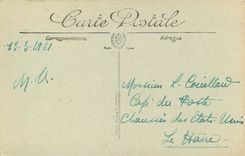 Carte Postale
Correspondance
Adresse
13-3-1921
M. A.
Monsieur L. Couillard
Café du Poste
Chaussée des Etats Unis
Le Havre